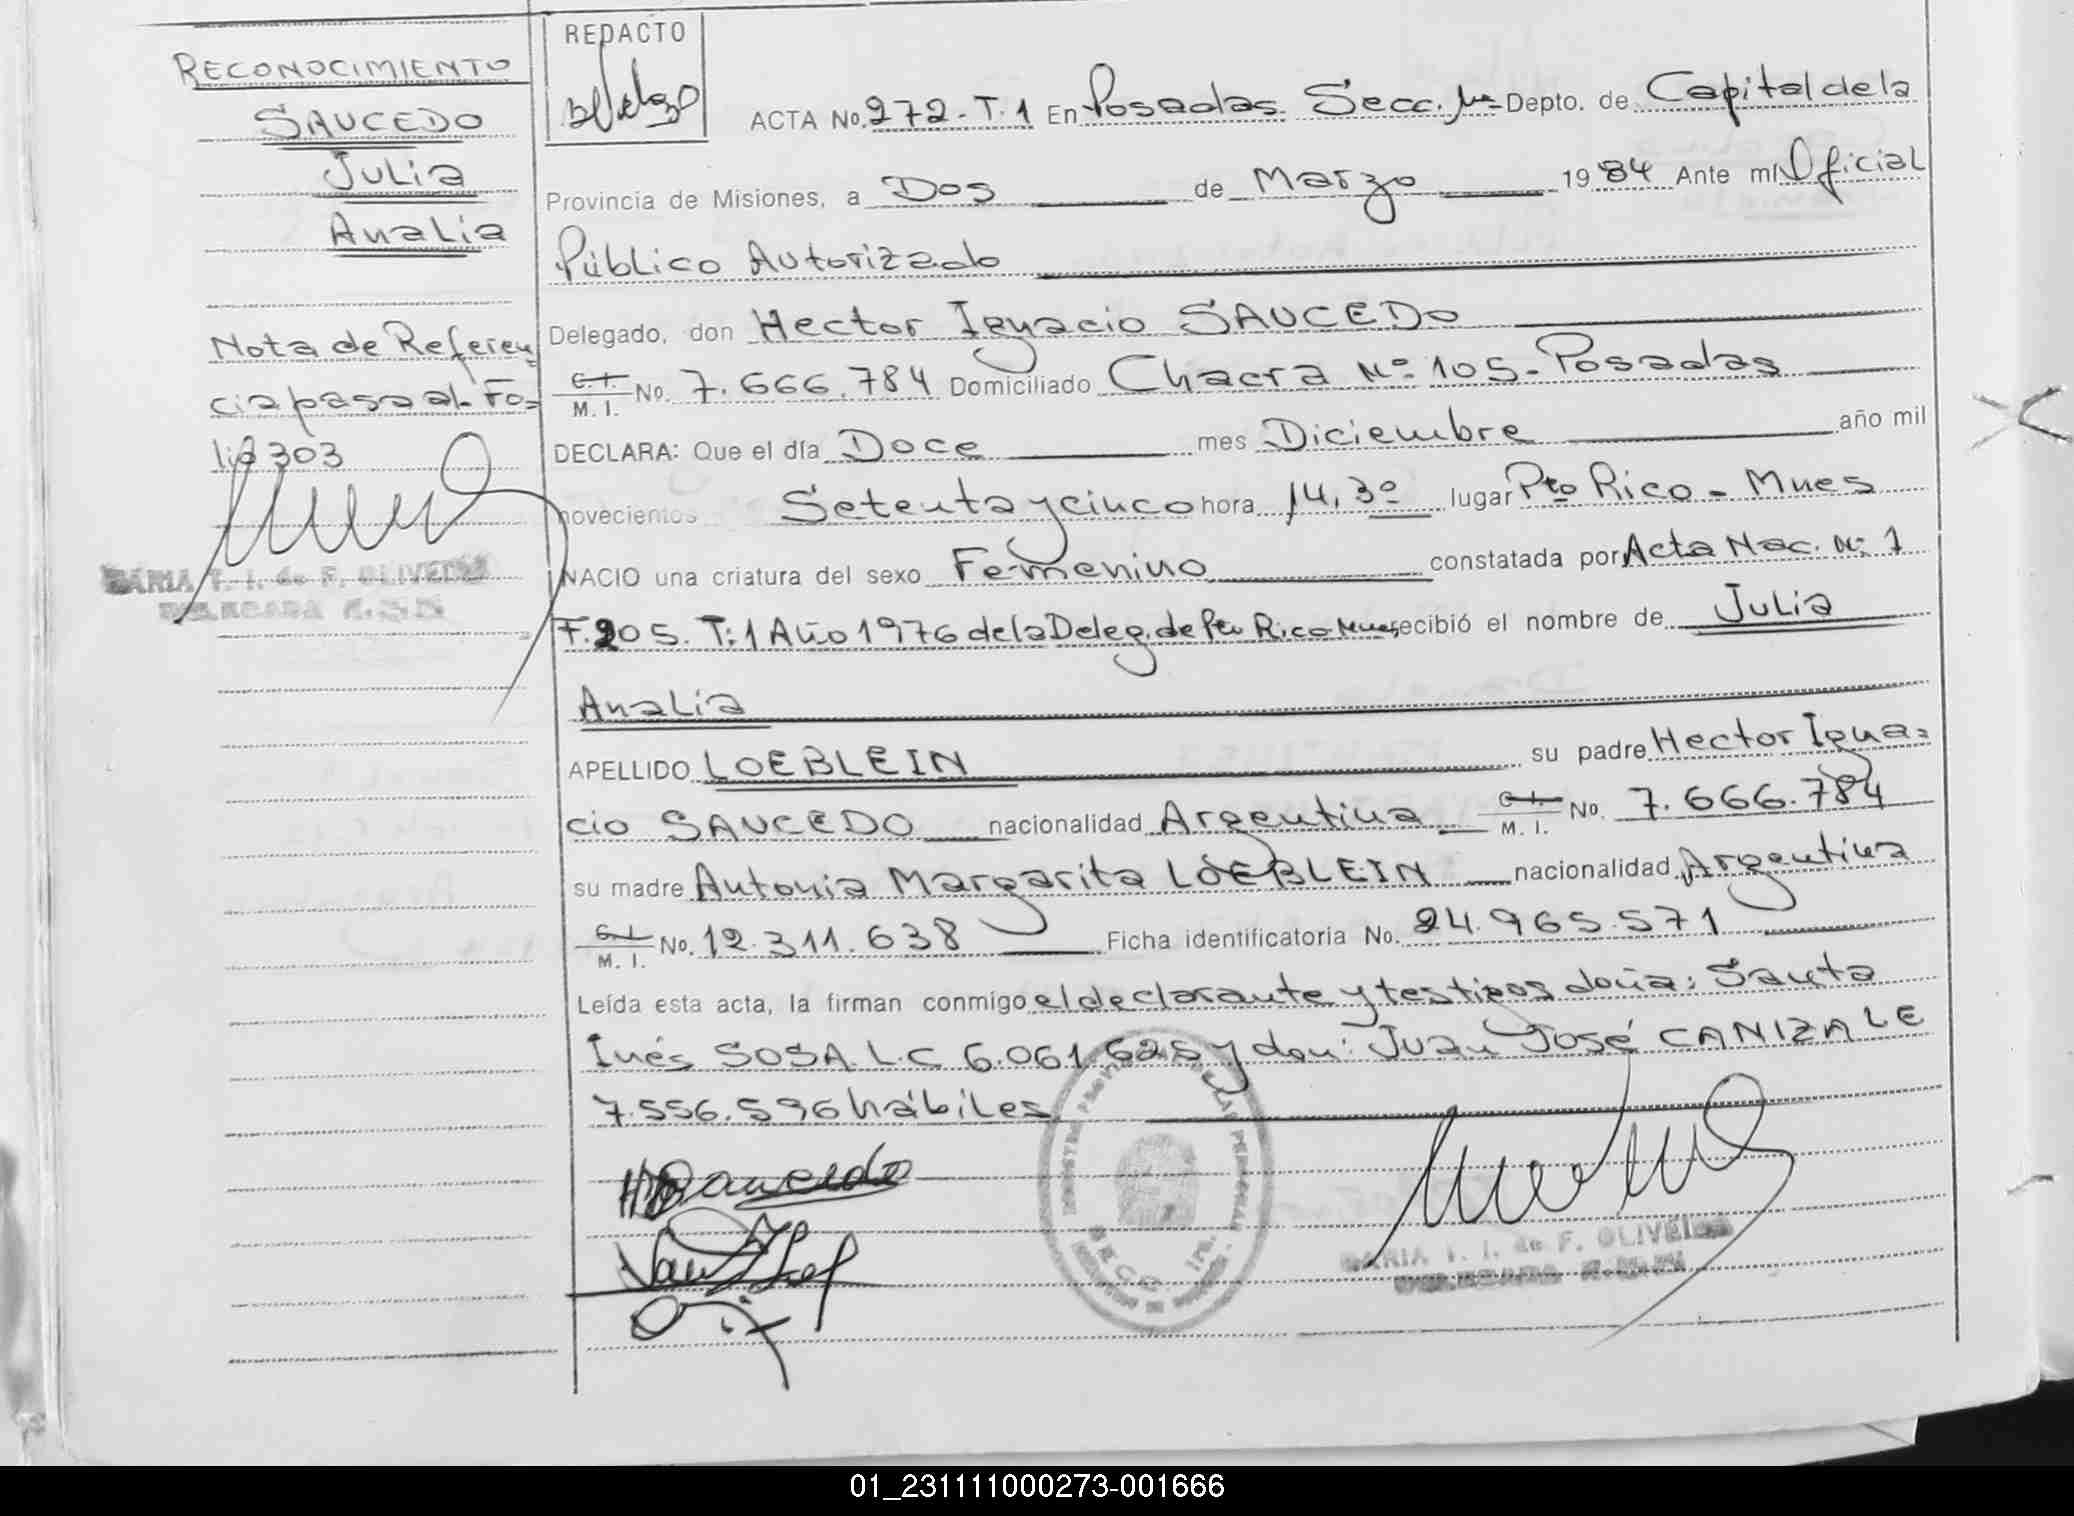 RECONOCIMIENTO
SAUCEDO
Julia
Analia
Nota de Referen
cia pasa al Fo=
lio 303
MARIA T. I. de F. OLIVEIRA
DELEGADA
REDACTO
ACTA No. 272-T.1 En Posadas Secc. 1ra Depto. de Capital de la
Provincia de Misiones, a Dos de Marzo 1984 Ante mí Oficial
Público Autorizado
Delegado, don Hector Ignacio SAUCEDO
C.I. M. I. No. 7.666.784 Domiciliado Chacra Nº 105-Posadas
DECLARA: Que el día Doce mes Diciembre año mil
novecientos Setenta y cinco hora 14,30 lugar Pto Rico - Mnes
NACIO una criatura del sexo Femenino constatada por Acta Nac. Nº 1
F.205. T:1 Año 1976 de la Deleg. de Pto Rico Mnes recibió el nombre de Julia
Analia
APELLIDO LOEBLEIN su padre Hector Igna=
cio SAUCEDO nacionalidad Argentina C.I. M. I. No. 7.666.784
su madre Antonia Margarita LOEBLEIN nacionalidad Argentina
C.I. M. I. No. 12.311.638 Ficha identificatoria No. 24.965.571
Leída esta acta, la firman conmigo el declarante y testigos doña: Santa
Inés SOSA. L.C 6.061.625 y don: Juan José CANIZALE
7.556.596 hábiles
MARIA T. I. de F. OLIVEIRA
DELEGADA
01_231111000273-001666